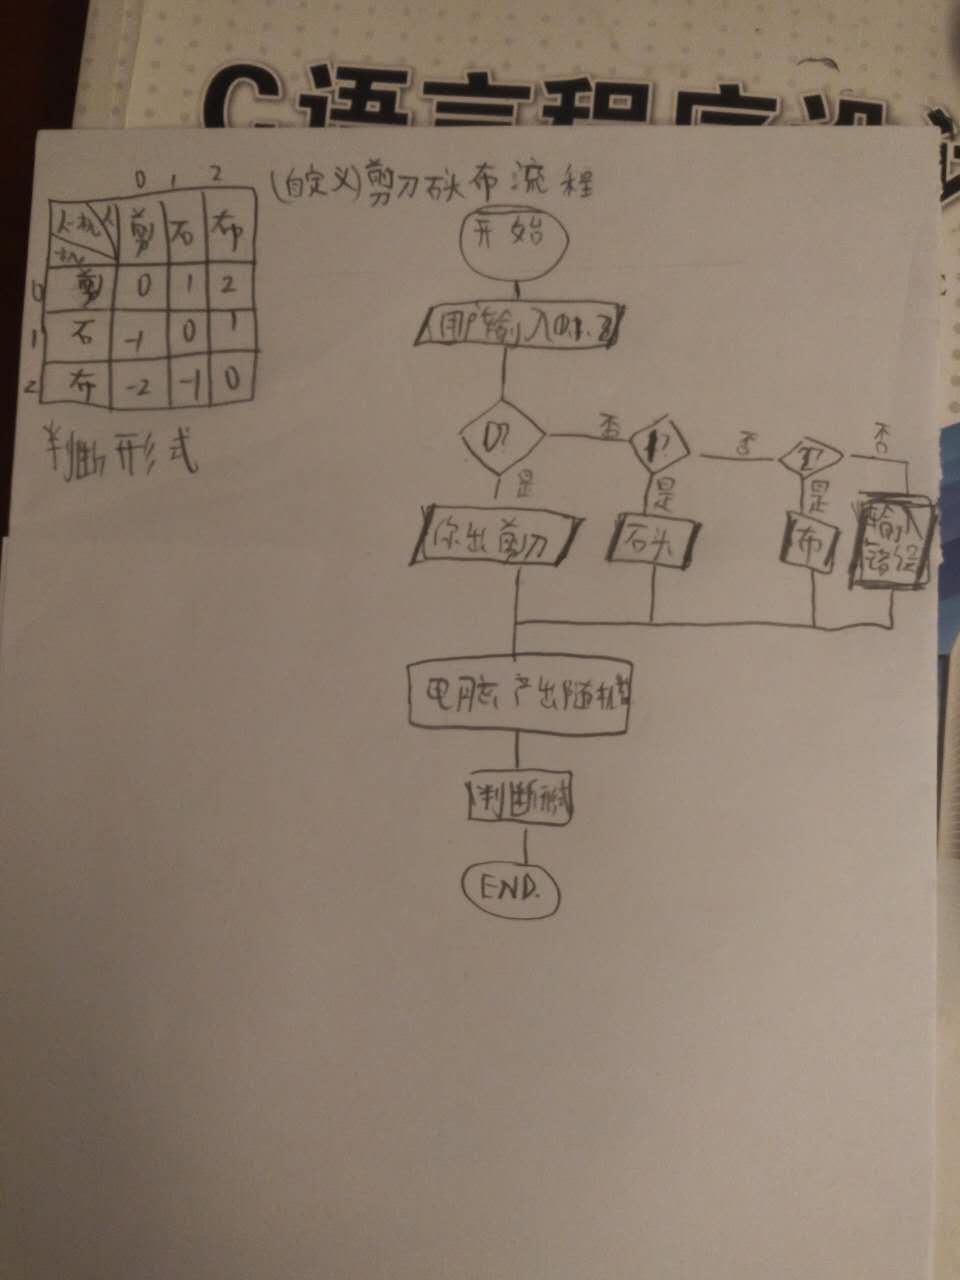 C语言程序设
(自定义)剪刀石头布流程
0 1 2
人-机 人 剪 石 布
机
0 剪 0 1 2
1 石 -1 0 1
2 布 -2 -1 0
判断形式
开始
用户输入0.1.2
0? 否 1? 否 2? 否
是 是 是
你出剪刀 石头 布 输入
错误
电脑产出随机数
判断形式
END.